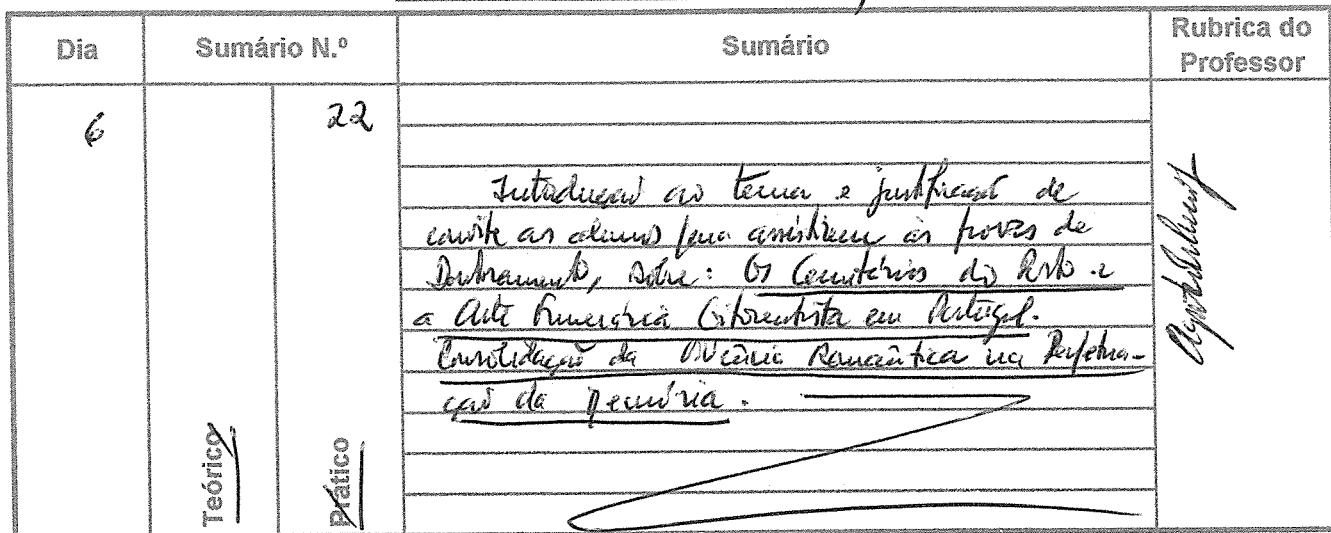 Dia
Sumário N.º
Sumário
Rubrica do
Professor
6
22
Introdução ao tema e justificação de
convite aos alunos para assistirem às provas de
Doutoramento, sobre: Os Cemitérios do Porto e
a Arte Funerária Oitocentista em Portugal.
Consolidação da Vivência Romântica na Perpetua-
ção da Memória.
Teórico
Prático